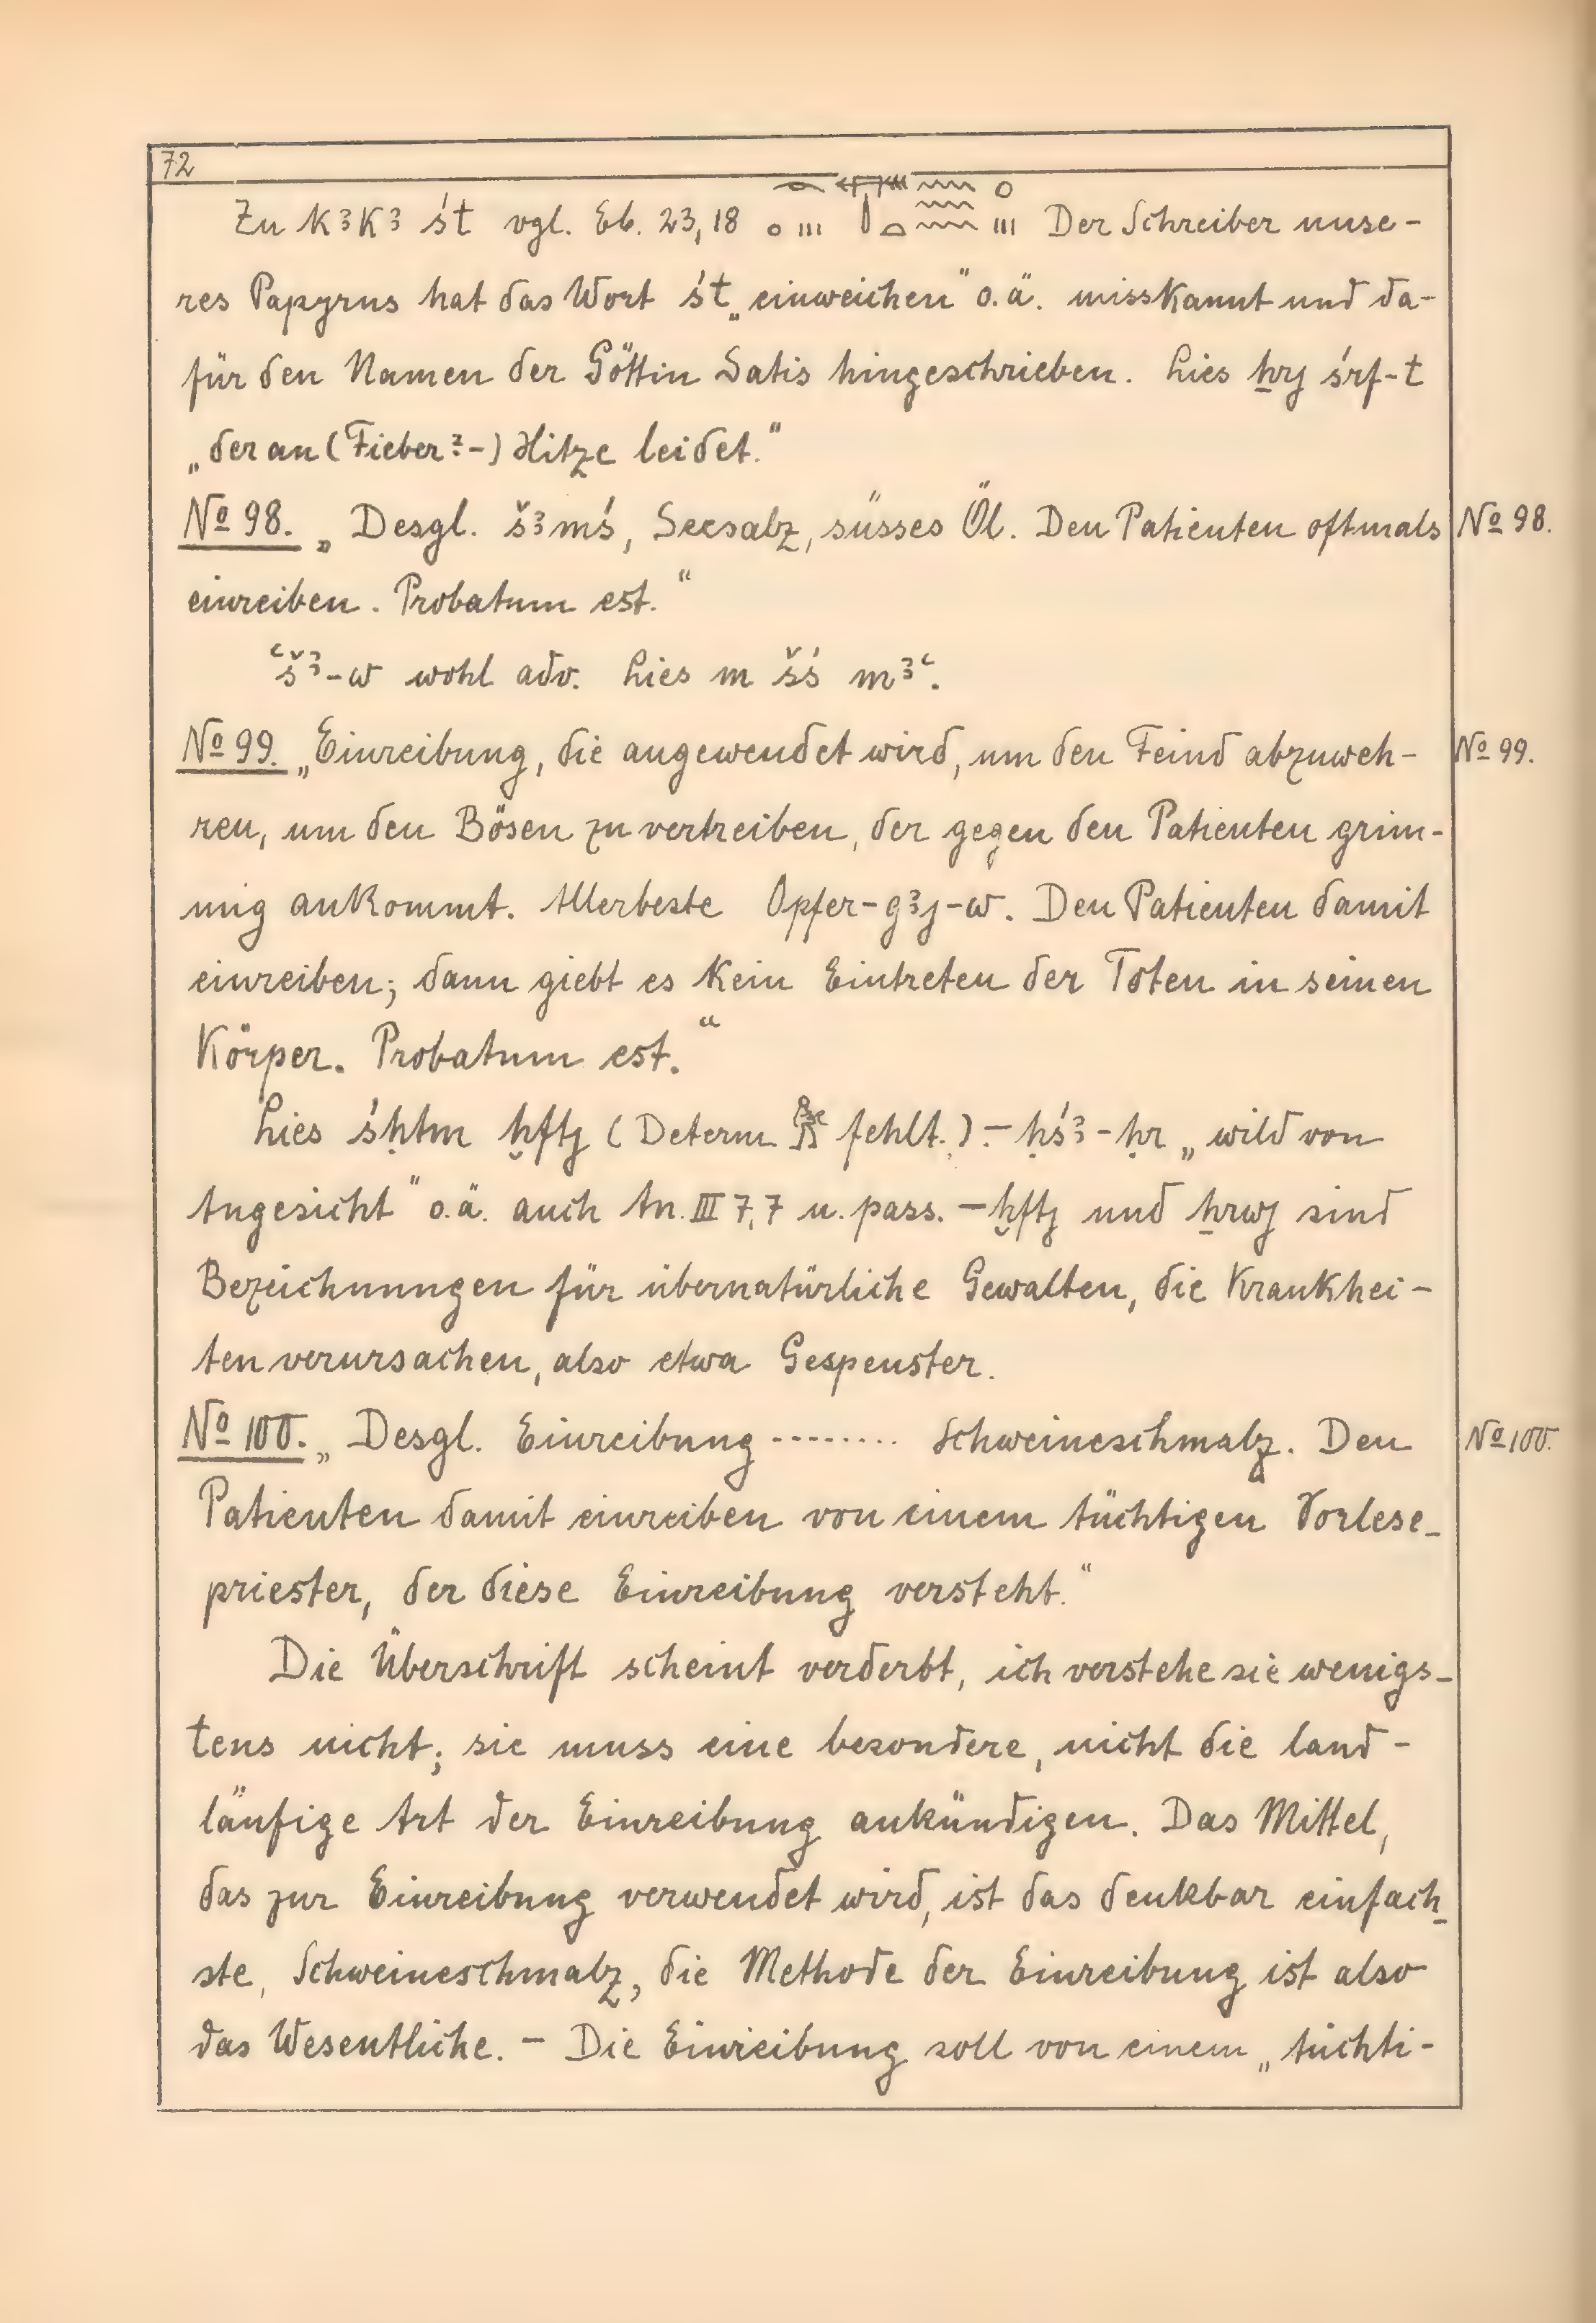 72
Zu kꜣkꜣ śt vgl. Eb. 23,18 Der Schreiber unse-
res Papyrus hat das Wort śt „einweichen" o.ä. misskannt und da-
für den Namen der Göttin Satis hingeschrieben. Lies ẖrj śrf-t
„der an (Fieber?-) Hitze leidet."
No 98. „Desgl. šꜣmś, Seesalz, süsses Öl. Den Patienten oftmals No 98.
einreiben. Probatum est."
ꜥšꜣ-w wohl adv. Lies m šś mꜣꜥ.
No 99. „Einreibung, die angewendet wird, um den Feind abzuweh- No 99.
ren, um den Bösen zu vertreiben, der gegen den Patienten grim-
mig ankommt. Allerbeste Opfer-gꜣj-w. Den Patienten damit
einreiben; dann giebt es kein Eintreten der Toten in seinen
Körper. Probatum est."
Lies śḥtm ḫftj (Determ. fehlt.) – ḥśꜣ-ḥr „wild von
Angesicht" o.ä. auch An. III 7,7 u. pass. – ḫftj und ẖrwj sind
Bezeichnungen für übernatürliche Gewalten, die Krankhei-
ten verursachen, also etwa Gespenster.
No 100. „Desgl. Einreibung ........ Schweineschmalz. Den No 100.
Patienten damit einreiben von einem tüchtigen Vorlese-
priester, der diese Einreibung versteht."
Die Überschrift scheint verderbt, ich verstehe sie wenigs-
tens nicht; sie muss eine besondere, nicht die land-
läufige Art der Einreibung ankündigen. Das Mittel,
das zur Einreibung verwendet wird, ist das denkbar einfach-
ste, Schweineschmalz, die Methode der Einreibung ist also
das Wesentliche. – Die Einreibung soll von einem „tüchti-